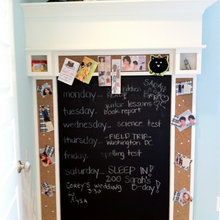 monday...
junior lessons
tuesday... book report
wednesday... science test
thursday... -FIELD TRIP-
Washington DC
friday... spelling test
saturday... SLEEP IN!
corey's wedding 200 Sarah's
3:30 B-day!